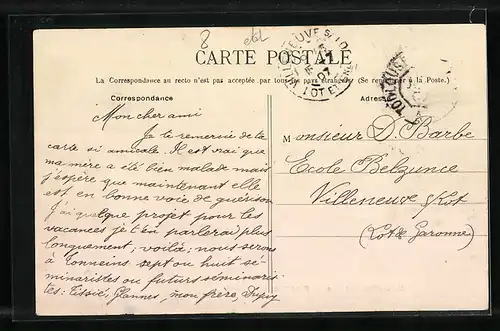 8
CARTE POSTALE
La Correspondance au recto n'est pas acceptée par tous les pays étrangers (Se renseigner à la Poste.)
VILLENEUVE S/ LOT
07
LOT ET
TOULOUSE
Correspondance
Adresse
Mon cher ami
Je te remercie de ta
carte si amicale. Il est vrai que
ma mère a été bien malade mais
j'espère que maintenant elle
est en bonne voie de guérison
J'ai quelque projet pour les
vacances je t'en parlerai plus
longuement; voilà; nous serons
à Tonneins sept ou huit sé-
minaristes ou futurs séminaris-
tes: Tissié, Glannes, mon frère, Dupuy
Monsieur D. Barbe
Ecole Belzunce
Villeneuve s/Lot
(Lot & Garonne)